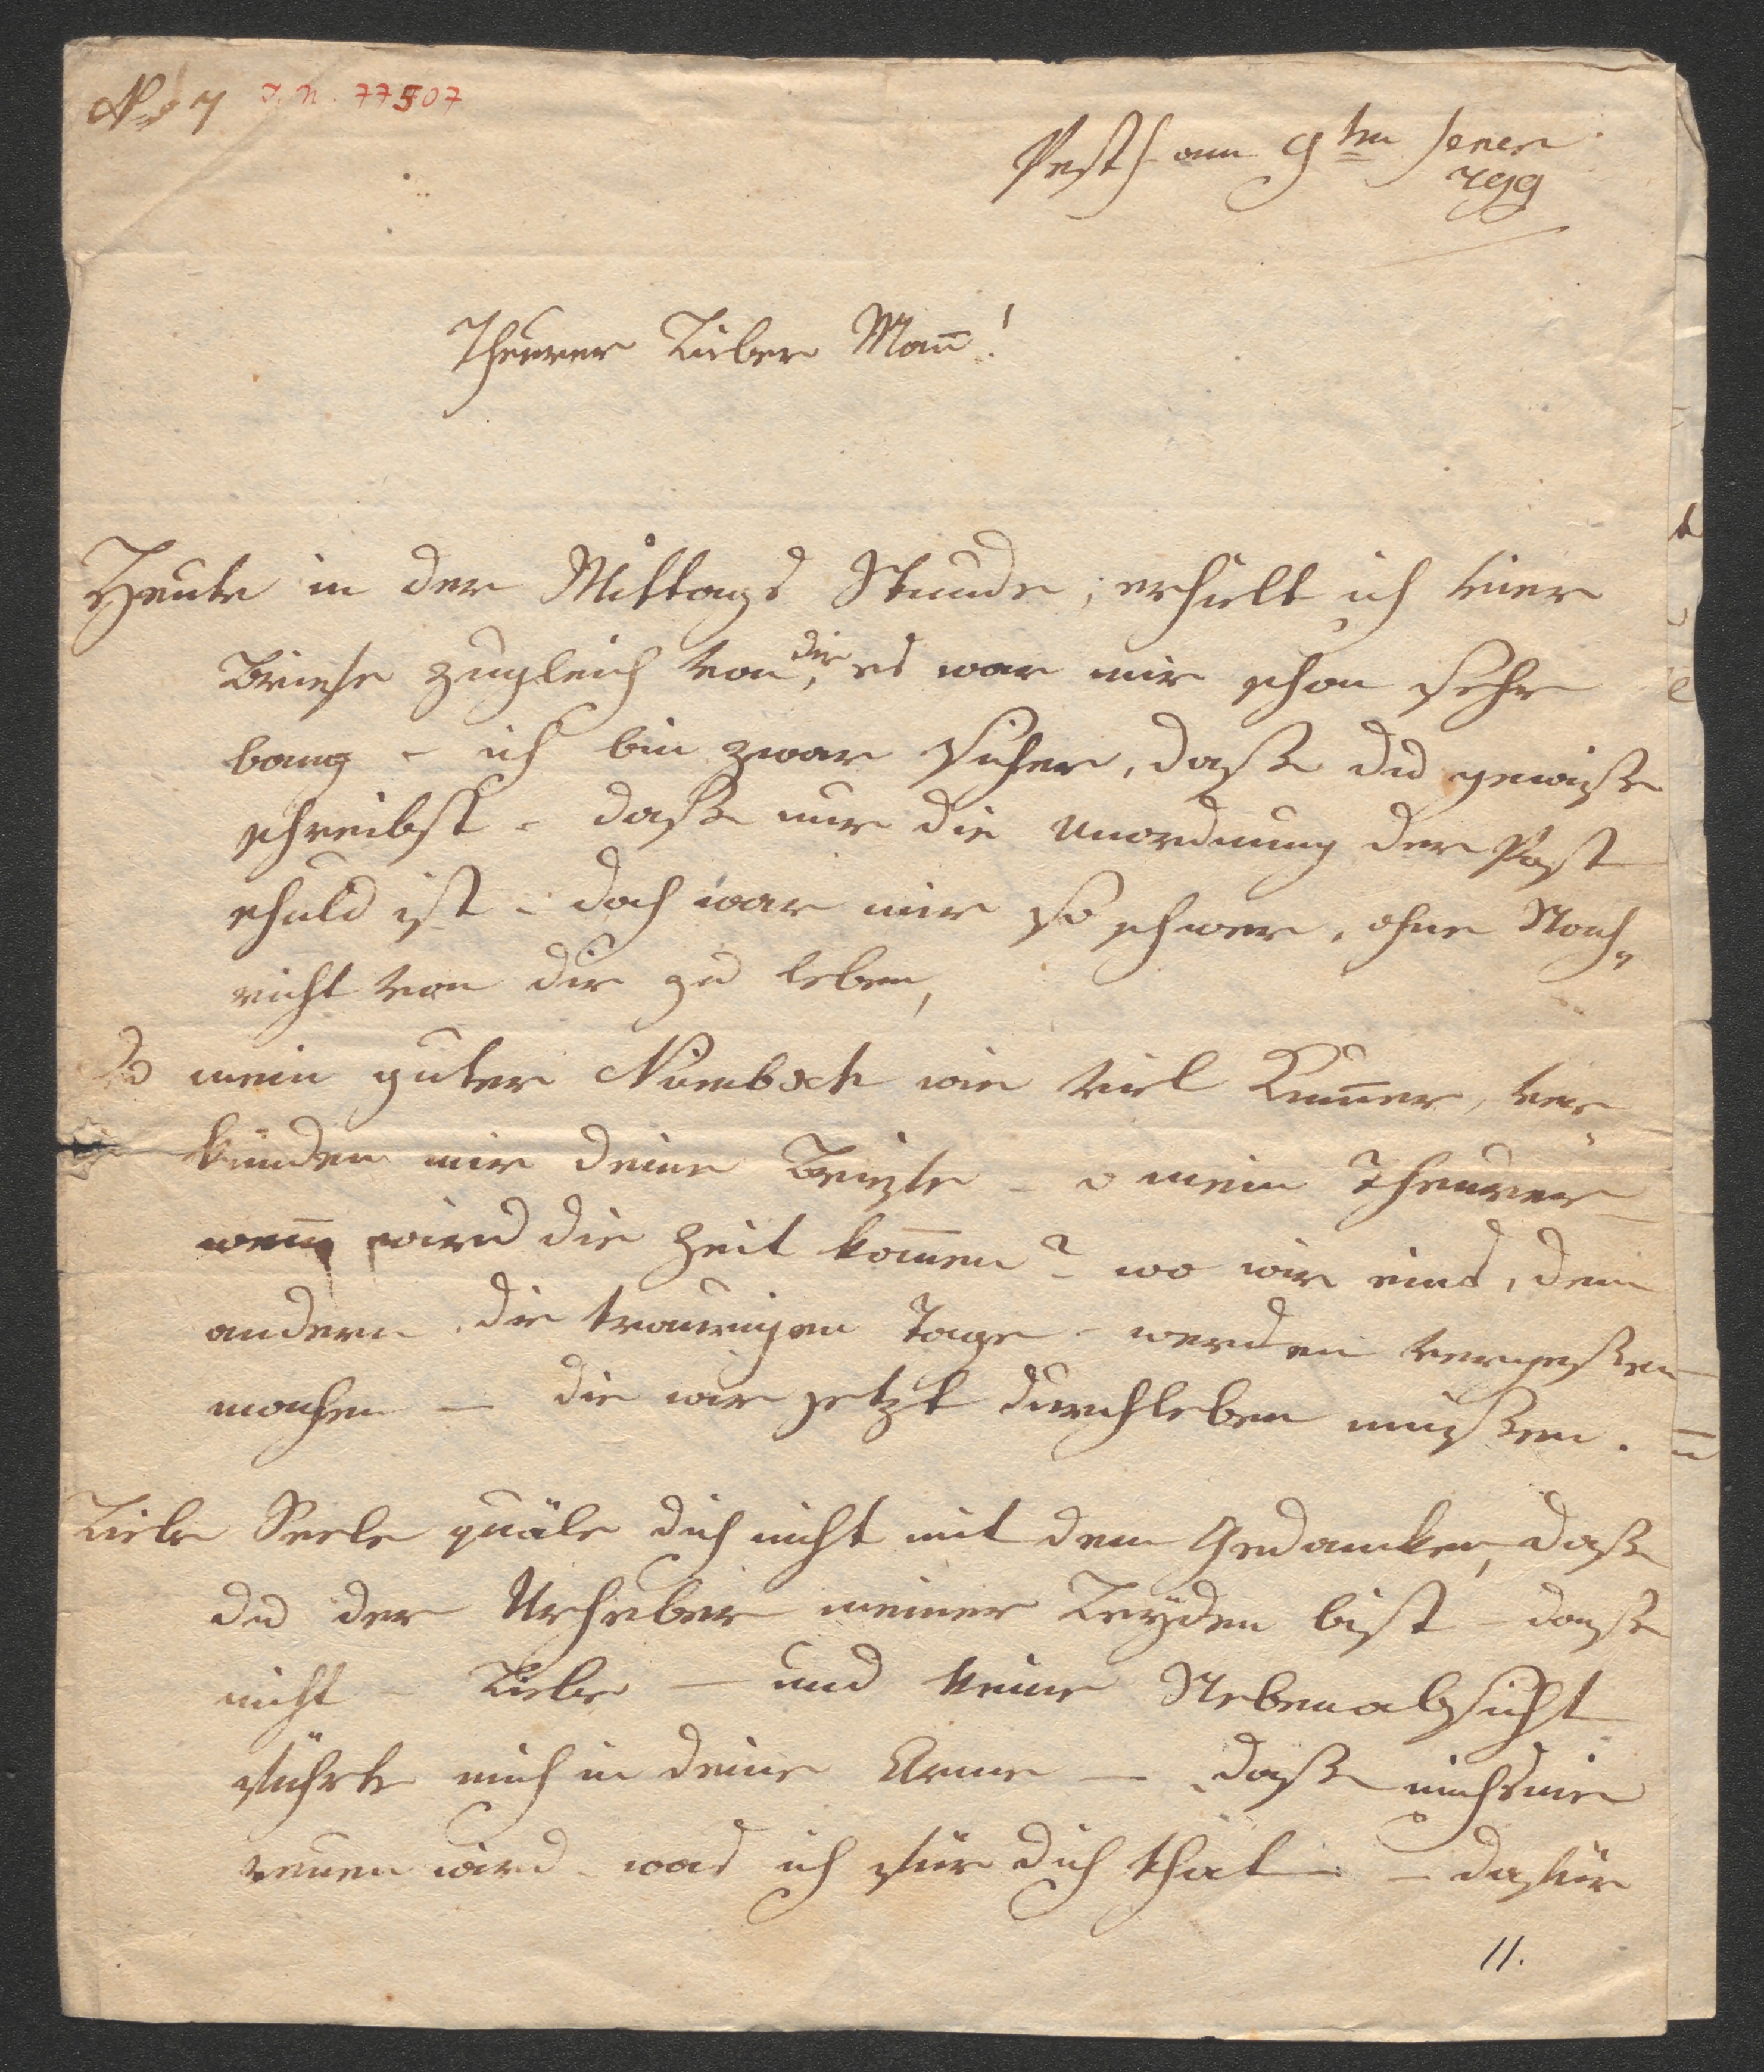 No 7 I. N. 77507
Pesth am 9ten Jener
799
Theurer Lieber Mañ!
Heute in der Mittags Stunde, erhielt ich vier
Briefe zugleich von dir, es war mir schon sehr
bang - ich bin zwar sicher, daße du gewiße
schreibst - daße nur die unordnung der Post
schuld ist - doch war mir so schwer, ohne Nach„
richt von dir zu leben,
O mein guter Niembsch wie viel Kum̃er, ver
künden mir deine Briefe - o mein Theurer
wen̄ wird die Zeit kom̃en? wo wir eins, dem
andern, die traurigen Tage - werden vergeßen
machen — die wir jetzt durchleben müßen.
Liebe Seele quäle dich nicht mit dem Gedancken, daße
du der Urheber meiner Leyden bist - daße
nicht - Liebe — und keine Nebenabsicht
führte mich in deine Arme — daße nichs mir
reuen wird - was ich für dich that — dafür
11.